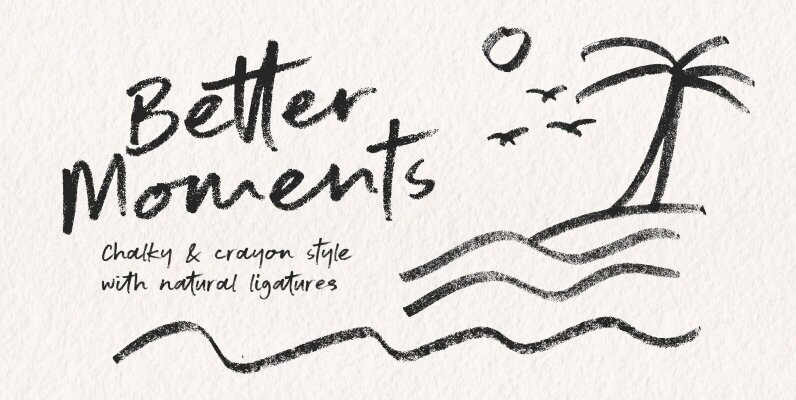 Better
Moments
Chalky & crayon style
with natural ligatures